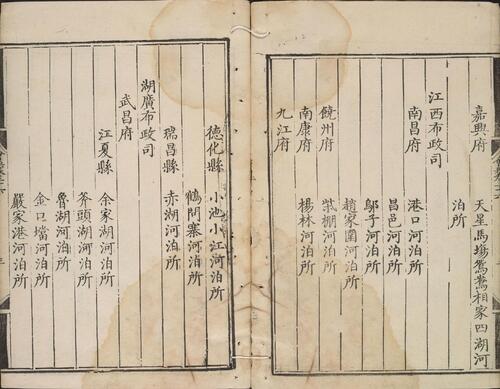 嘉興府 天星馬塲鴛鴦相家四湖河
泊所
江西布政司
南昌府 港口河泊所
昌邑河泊所
鄔子河泊所
趙家圍河泊所
饒州府 柴棚河泊所
南康府 楊林河泊所
九江府
德化縣 小池小江河泊所
鶴問寨河泊所
瑞昌縣 赤湖河泊所
湖廣布政司
武昌府
江夏縣 余家湖河泊所
斧頭湖河泊所
魯湖河泊所
金口壋河泊所
嚴家港河泊所